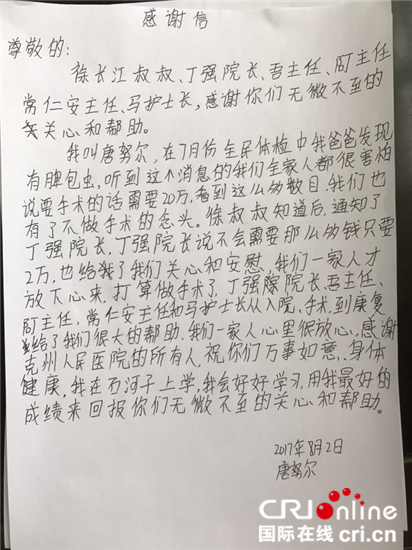 感谢信
尊敬的:
徐长江叔叔、丁强院长、吾主任、阿主任
常仁安主任、马护士长,感谢你们无微不至的
关心和帮助。
我叫唐努尔,在7月份全民体检中我爸爸发现
有脾包虫,听到这个消息的我们全家人都很害怕
说要手术的话需要20万,看到这么多数目,我们也
有了不做手术的念头。徐叔叔知道后,通知了
丁强院长,丁强院长说不会需要那么多钱只要
2万,也给我了我们关心和安慰,我们一家人才
放下心来,打算做手术了,丁强院长、吾主任、
阿主任,常仁安主任和马护士长从入院,手术,到康复
给了我们很大的帮助,我们一家人心里很放心,感谢
克州人民医院的所有人,祝你们万事如意,身体
健康,我在石河子上学,我会好好学习,用我最好的
成绩来回报你们无微不至的关心和帮助。
2017年8月2日
唐努尔
CRIonline
国际在线 cri.cn